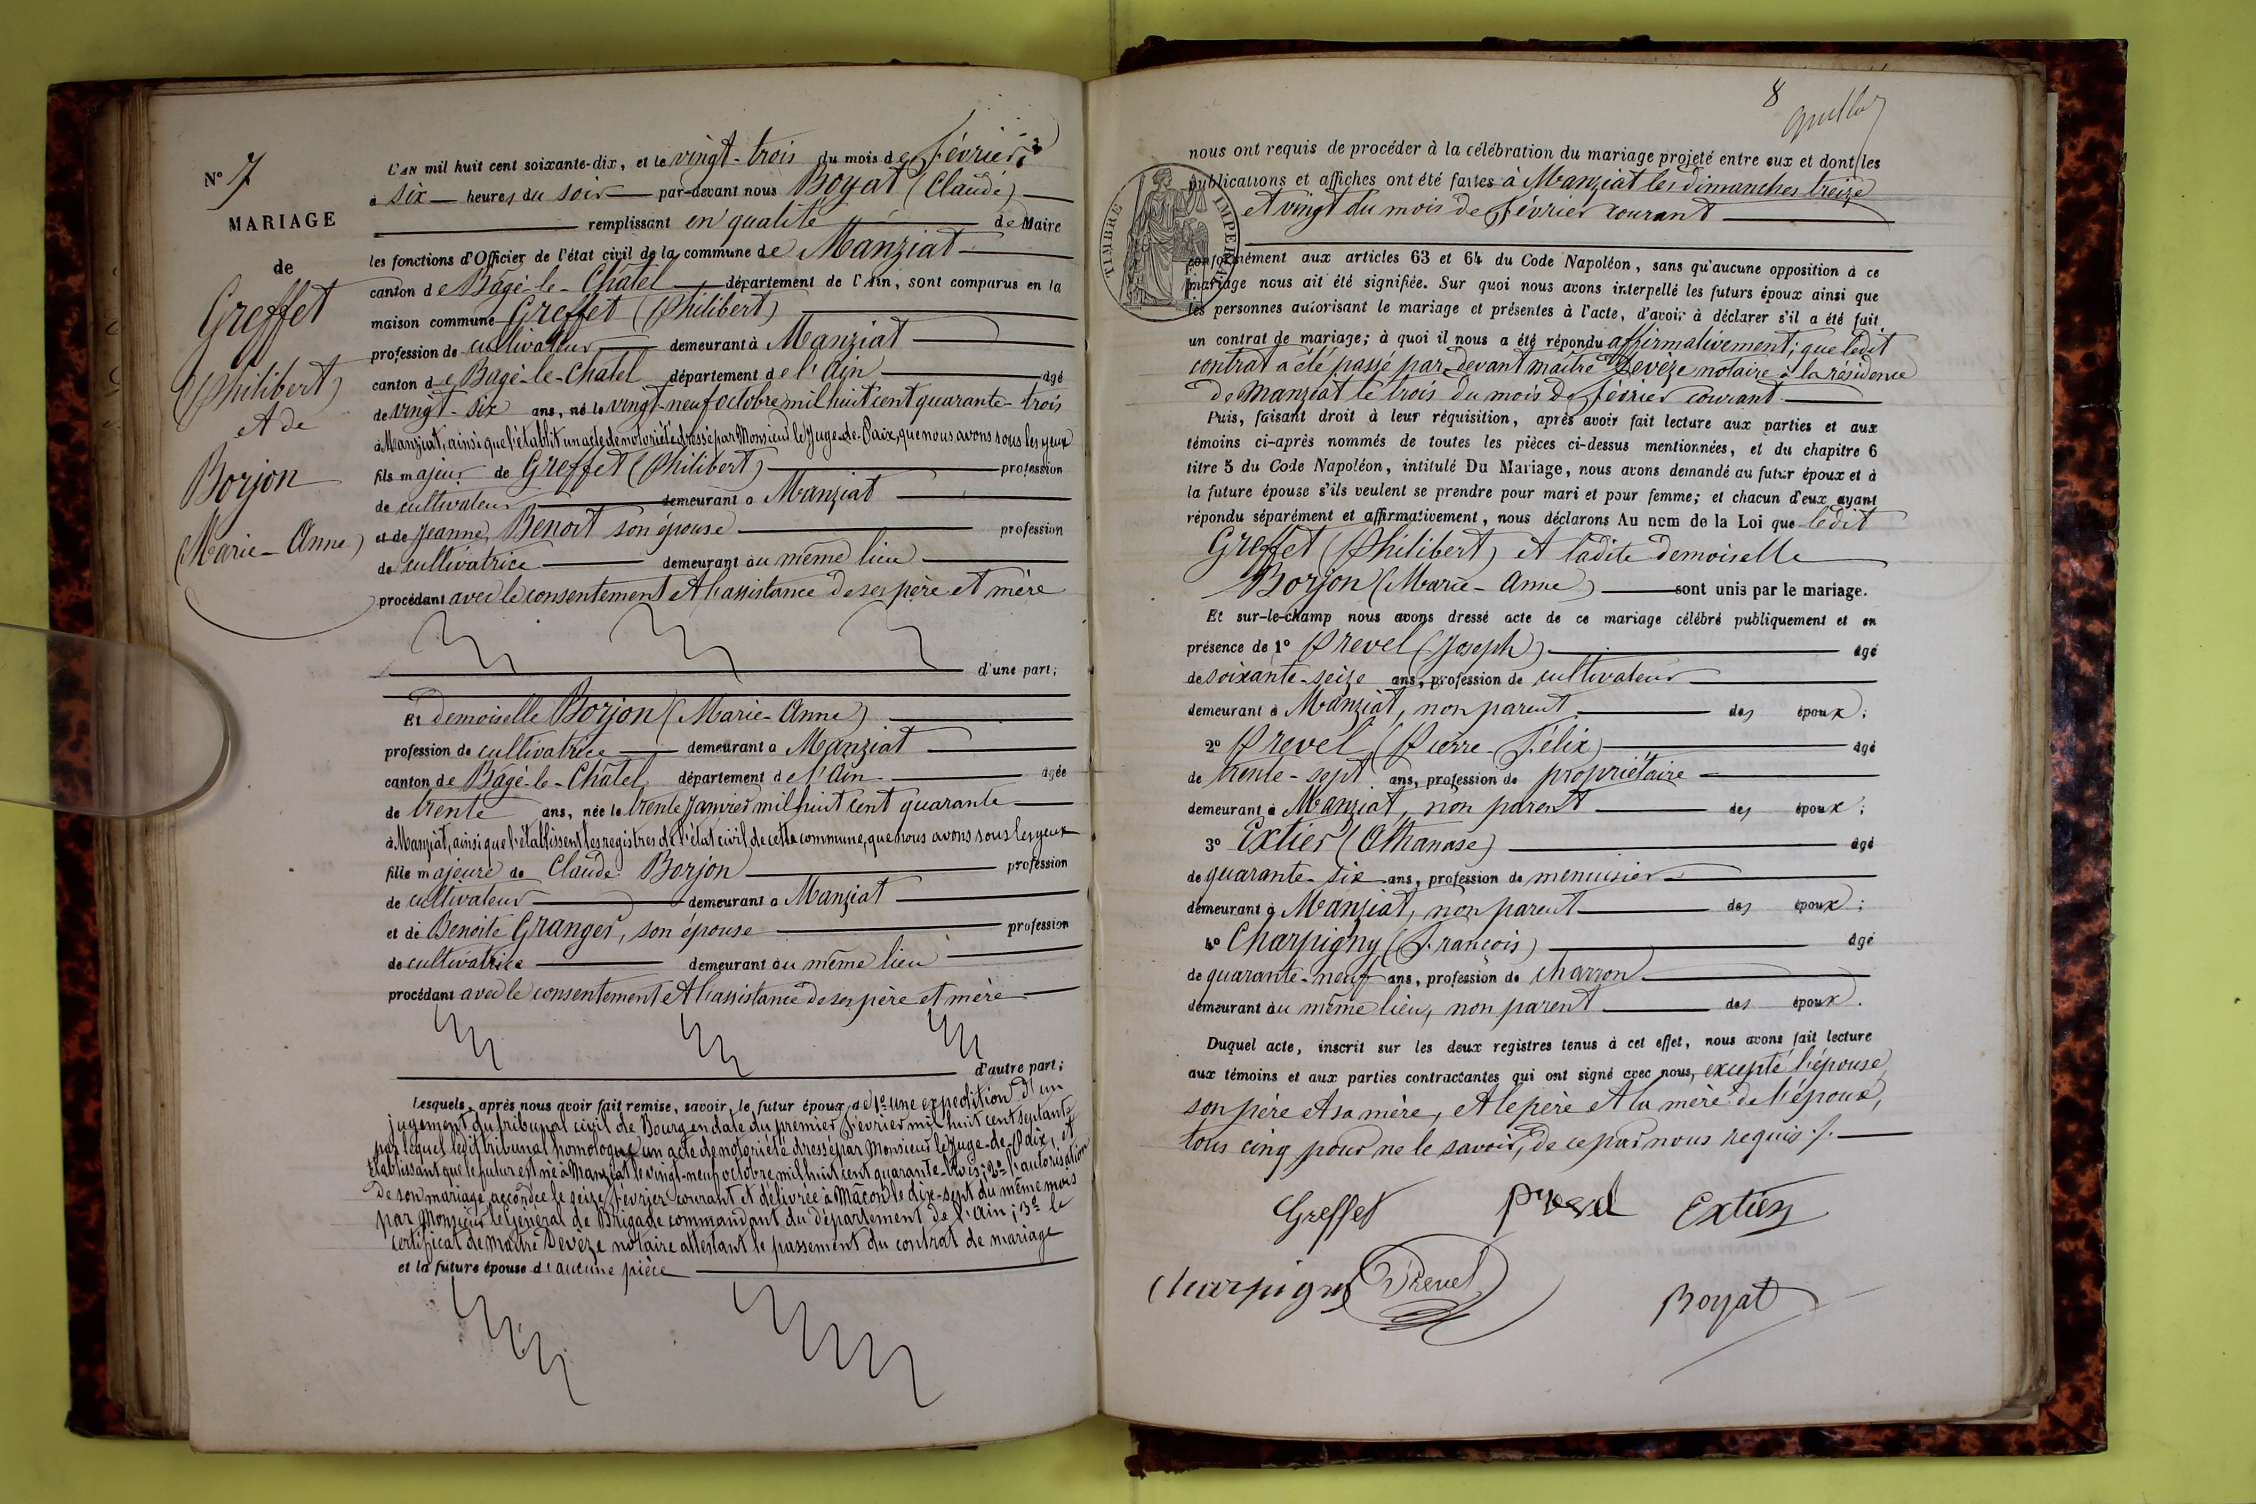 N° 7
MARIAGE
de
Greffet
(Philibert)
et de
Borjon
(Marie-Anne)
L'AN mil huit cent soixante-dix, et le vingt-trois du mois de Février,
à six heures du soir par-devant nous Boyat (Claude)
remplissant en qualité de Maire
les fonctions d'Officier de l'état civil de la commune de Manziat
canton de Bâgé-le-Châtel département de l'Ain, sont comparus en la
maison commune Greffet (Philibert)
profession de cultivateur demeurant à Manziat
canton de Bâgé-le-Châtel département de l'Ain âgé
de vingt-six ans, né le vingt-neuf octobre mil huit cent quarante-trois
à Manziat, ainsi que l'établit un acte de notoriété dressé par Monsieur le Juge-de-Paix, que nous avons sous les yeux
fils majeur de Greffet (Philibert) profession
de cultivateur demeurant à Manziat
et de Jeanne Benoit son épouse profession
de cultivatrice demeurant au même lieu
procédant avec le consentement et l'assistance de ses père et mère
d'une part;
Et demoiselle Borjon (Marie-Anne)
profession de cultivatrice demeurant à Manziat
canton de Bâgé-le-Châtel département de l'Ain âgée
de trente ans, née le trente Janvier mil huit cent quarante
à Manziat, ainsi que l'établissent les registres de l'état civil de cette commune, que nous avons sous les yeux
fille majeure de Claude Borjon profession
de cultivateur demeurant à Manziat
et de Benoite Granger, son épouse profession
de cultivatrice demeurant au même lieu
procédant avec le consentement et l'assistance de ses père et mère
d'autre part;
Lesquels, après nous avoir fait remise, savoir, le futur époux de 1° une expédition d'un
jugement du tribunal civil de Bourg en date du premier Février mil huit cent septante
par lequel ledit tribunal homologue un acte de notoriété dressé par Monsieur le Juge-de-Paix, et
établissant que le futur est né à Manziat le vingt-neuf octobre mil huit cent quarante-trois; 2° l'autorisation
de son mariage accordée le seize Février courant et délivrée à Mâcon le dix-sept du même mois
par Monsieur le Général de Brigade commandant du département de l'Ain; 3° le
certificat de maître Devèze notaire attestant le passement du contrat de mariage
et la future épouse d'aucune pièce
8
nous ont requis de procéder à la célébration du mariage projeté entre eux et dont les
publications et affiches ont été faites à Manziat les dimanches treize
et vingt du mois de Février courant
TIMBRE IMPERIAL
conformément aux articles 63 et 64 du Code Napoléon, sans qu'aucune opposition à ce
mariage nous ait été signifiée. Sur quoi nous avons interpellé les futurs époux ainsi que
les personnes autorisant le mariage et présentes à l'acte, d'avoir à déclarer s'il a été fait
un contrat de mariage; à quoi il nous a été répondu affirmativement; que ledit
contrat a été passé par-devant maître Devèze notaire à la résidence
de Manziat le trois du mois de février courant.
Puis, faisant droit à leur réquisition, après avoir fait lecture aux parties et aux
témoins ci-après nommés de toutes les pièces ci-dessus mentionnées, et du chapitre 6
titre 5 du Code Napoléon, intitulé Du Mariage, nous avons demandé au futur époux et à
la future épouse s'ils veulent se prendre pour mari et pour femme; et chacun d'eux ayant
répondu séparément et affirmativement, nous déclarons Au nom de la Loi que ledit
Greffet (Philibert) et ladite demoiselle
Borjon (Marie-Anne) sont unis par le mariage.
Et sur-le-champ nous avons dressé acte de ce mariage célébré publiquement et en
présence de 1° Prevel (Joseph) âgé
de soixante-seize ans, profession de cultivateur
demeurant à Manziat, non parent des époux;
2° Prevel (Pierre-Félix) âgé
de trente-sept ans, profession de propriétaire
demeurant à Manziat, non parent des époux;
3° Extier (Athanase) âgé
de quarante-six ans, profession de menuisier
demeurant à Manziat, non parent des époux;
4° Charpigny (François) âgé
de quarante-neuf ans, profession de charron
demeurant au même lieu, non parent des époux.
Duquel acte, inscrit sur les deux registres tenus à cet effet, nous avons fait lecture
aux témoins et aux parties contractantes qui ont signé avec nous, excepté l'épouse,
son père et sa mère, et le père et la mère de l'époux,
tous cinq pour ne le savoir, de ce par nous requis ./.
Greffet Prevel Extier
Charpigny Prevel Boyat